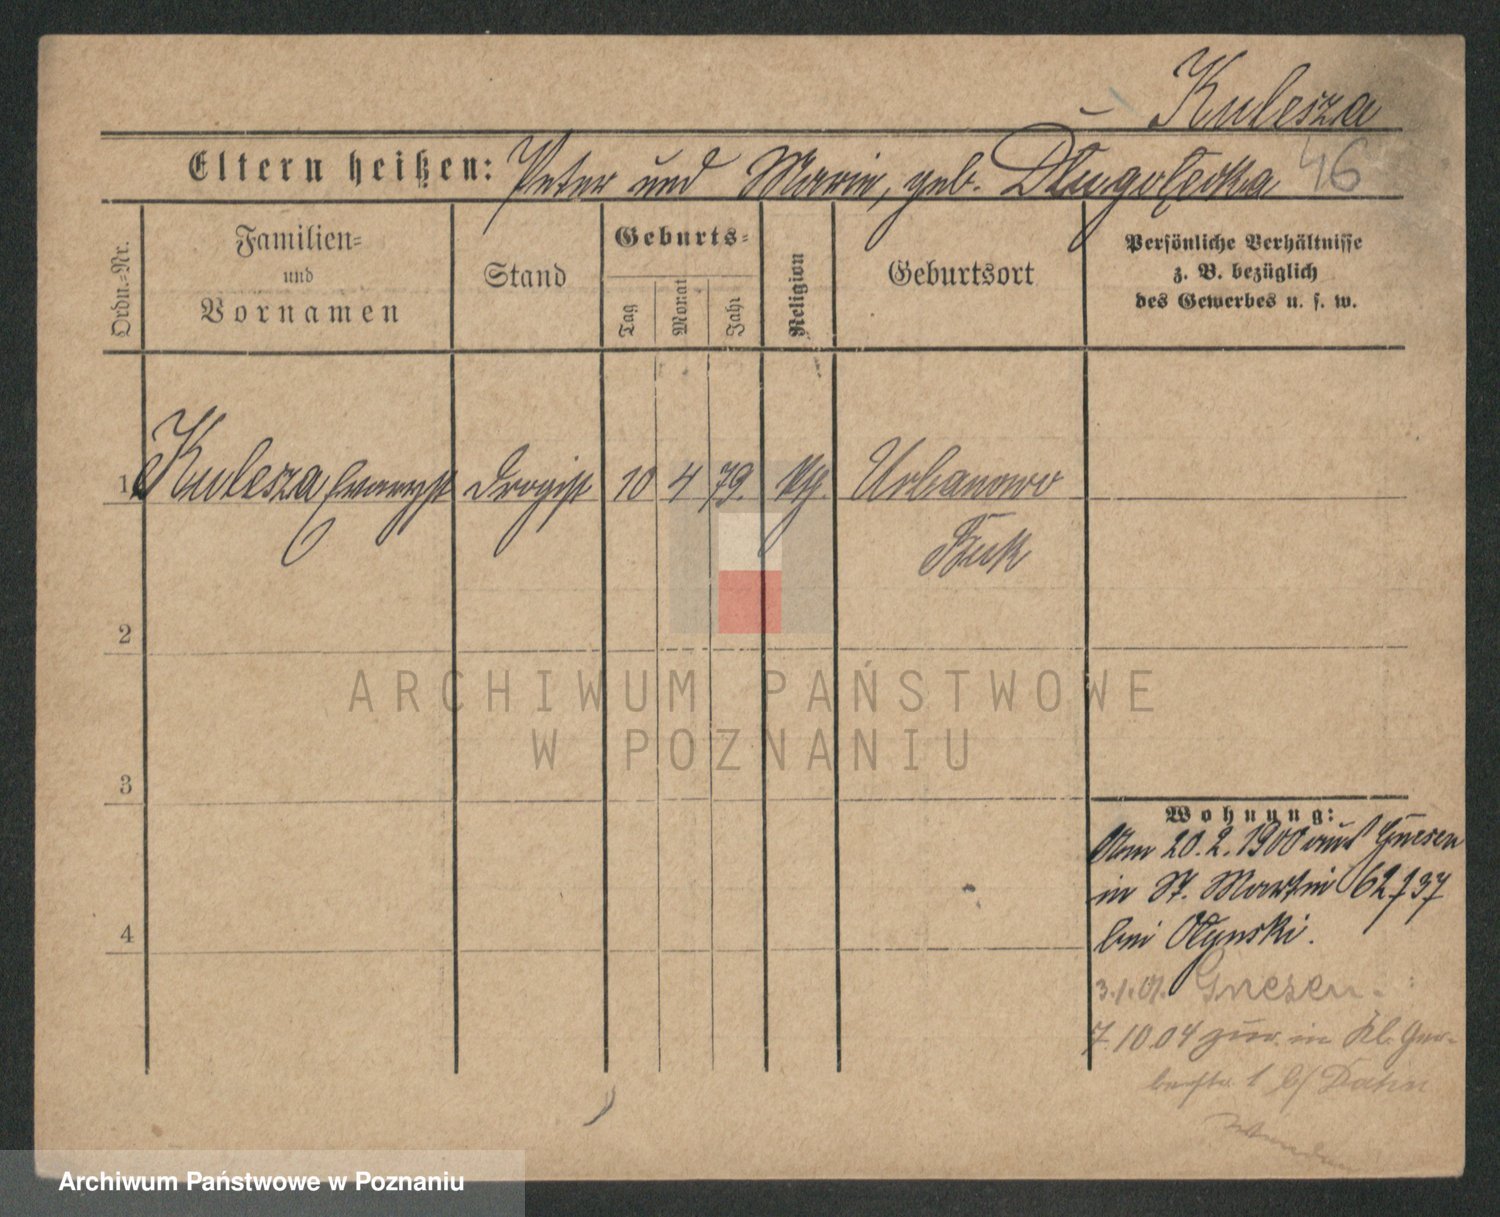 Kulesza
Eltern heißen: Peter und Marie, geb. Długołęcka 46
Ordn.=Nr.
Familien=
und
Vornamen
Stand
Geburts=
Tag
Monat
Jahr
Religion
Geburtsort
Persönliche Verhältnisse
z. B. bezüglich
des Gewerbes u. s. w.
1 Kulesza Evaryst Drogist 10 4 79. kg. Urbanowo
Buk
2
3
4
Wohnung:
Vom 20.2.1900 aus Gnesen
in St. Martin 62
bei
3.1.01. Gnesen.
7.10.04 zur. in Kl. Ger-
berstr. 1 b/
ARCHIWUM PAŃSTWOWE
W POZNANIU
Archiwum Państwowe w Poznaniu